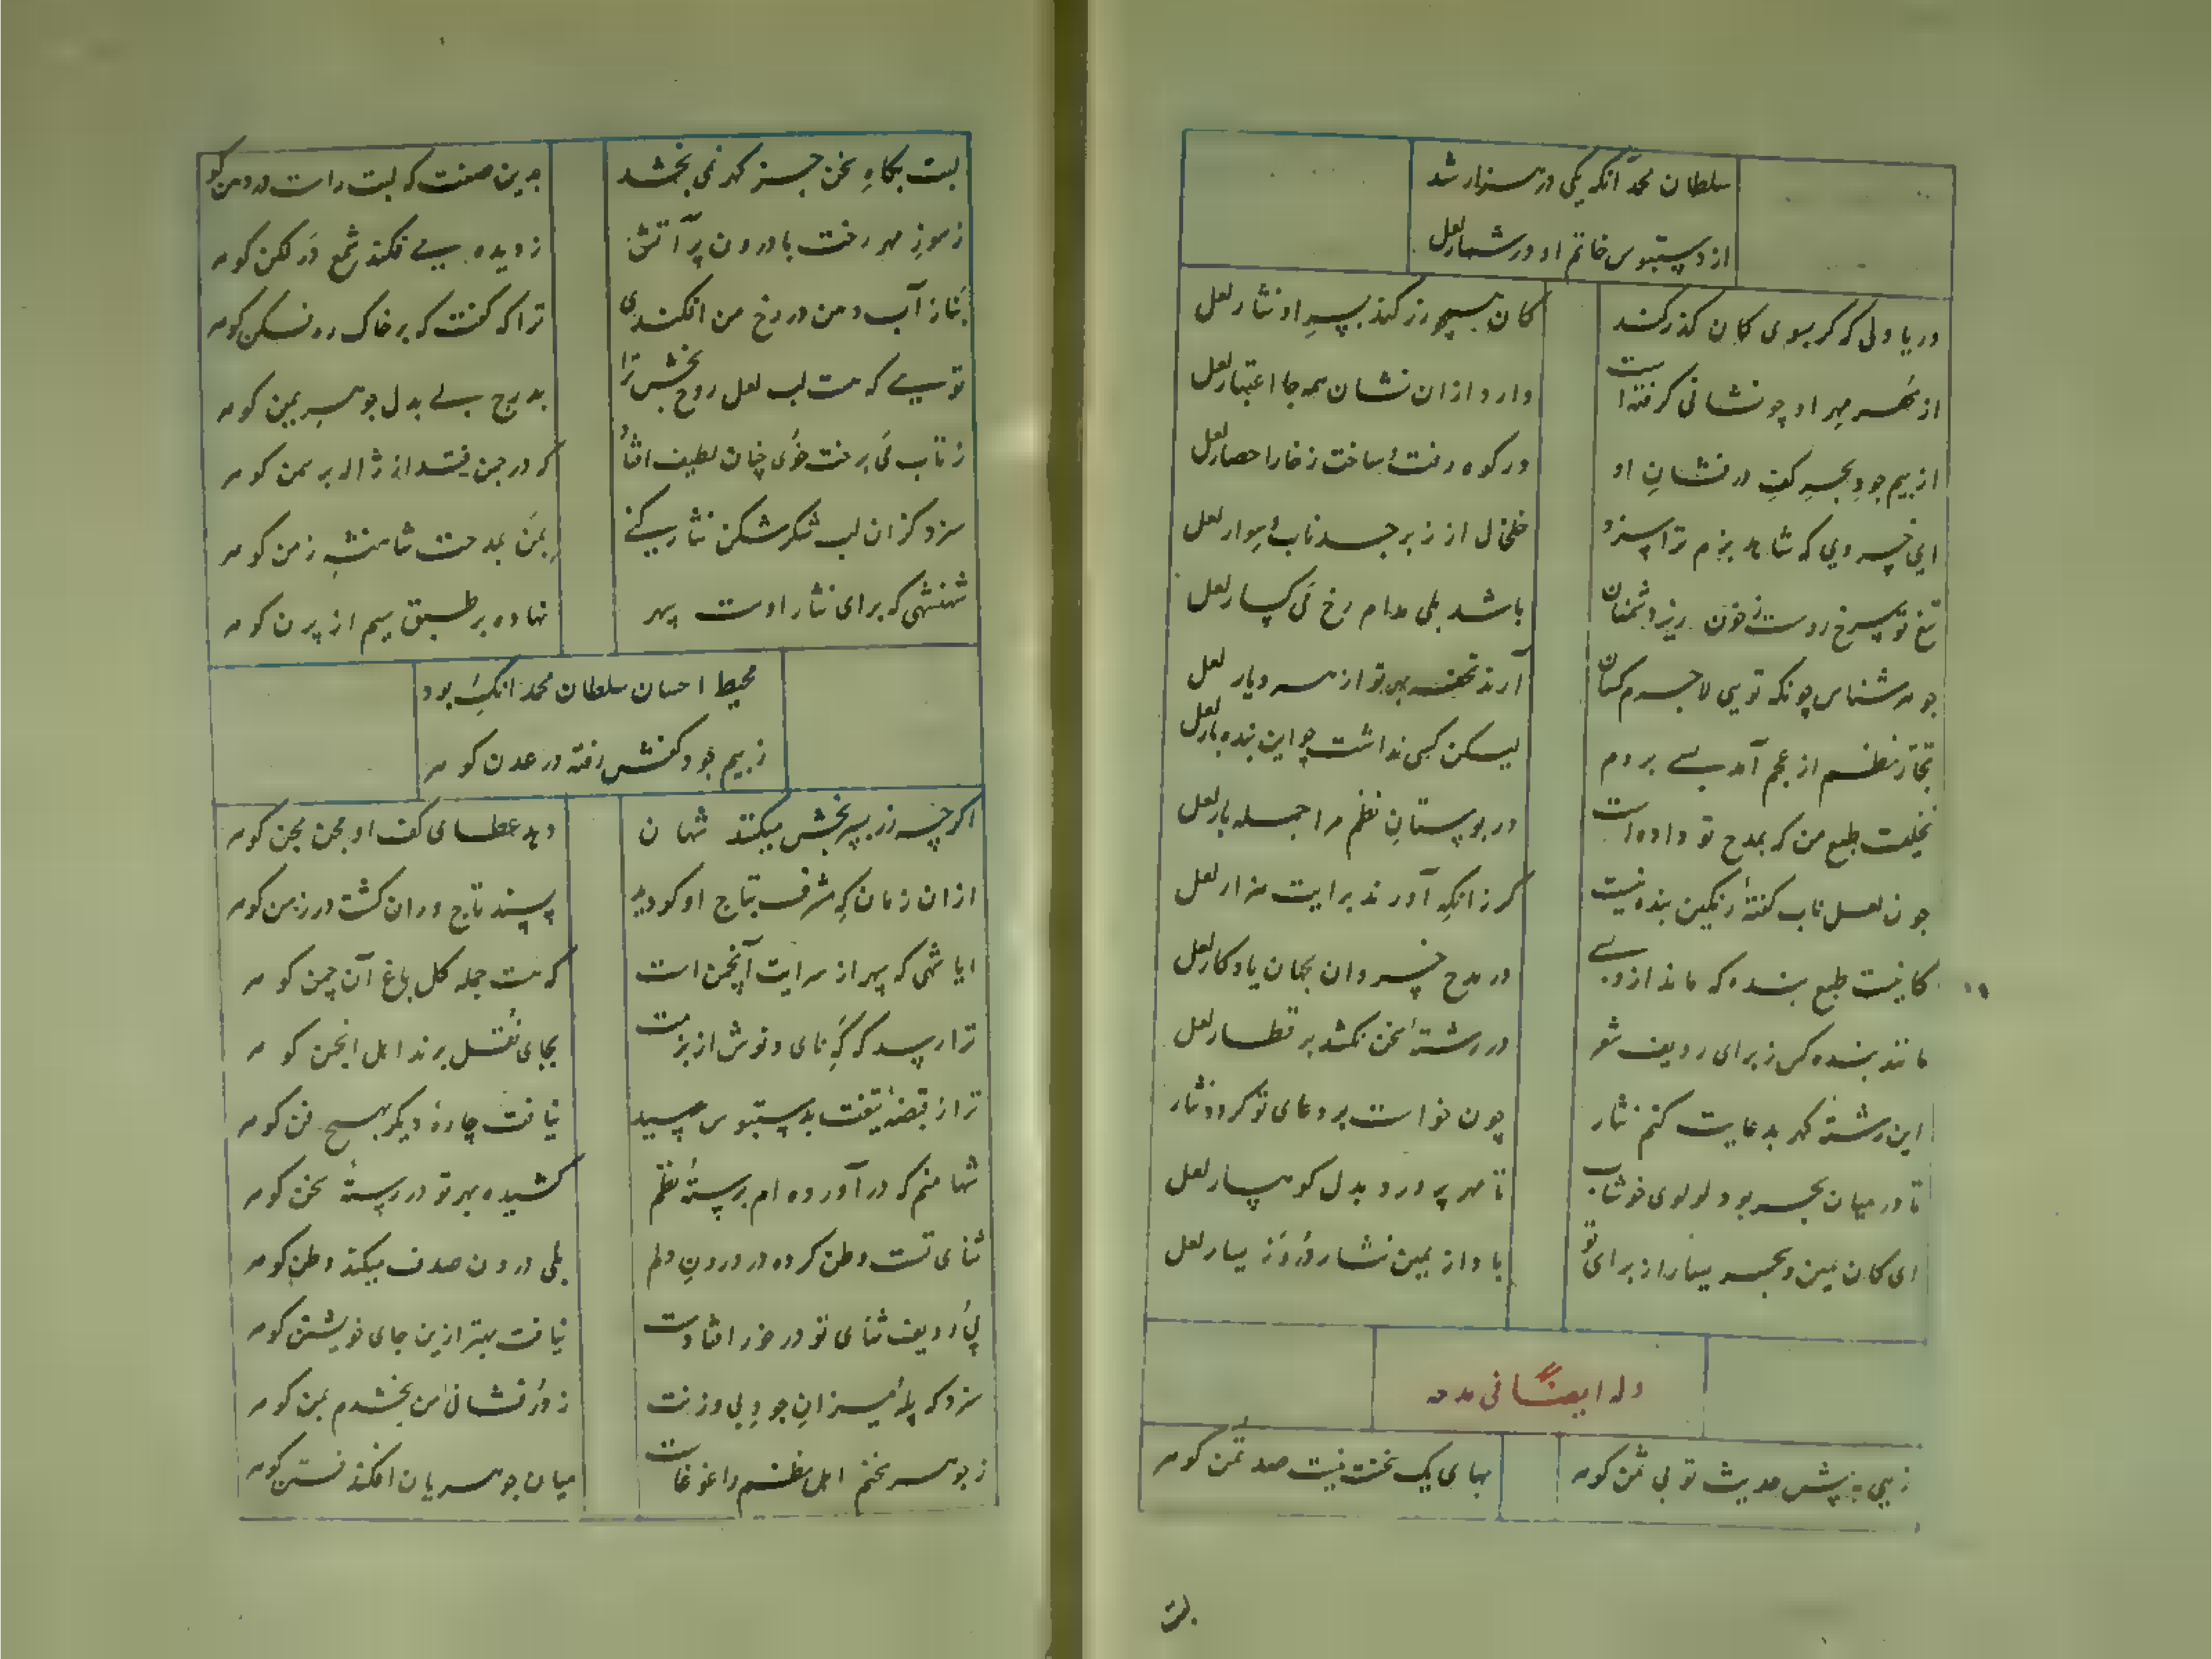 سلطان محمد آنکه یکی در هزار شد
از دستبوس خاتم او در شمار لعل
دریا دلی که گر بسوی کان گذر کند
کان همچو زر کند بسر او نثار لعل
از مهر او چو نشانی گرفته است
دارد ازان نشان همه جا اعتبار لعل
از بیم جود بحر کف درفشان او
در کوه رفت و ساخت ز خارا حصار لعل
ای خسروی که شاهد بزم ترا سزد
خلخال از زبرجد ناب و سوار لعل
تیغ تو سرخ روست ز خون ریز دشمنان
باشد بلی مدام رخ می کسار لعل
جوهر شناس چونکه تویی لاجرم کسان
آرند تحفه بهر تو از هر دیار لعل
تجار نظم از عجم آمد بسی بروم
لیکن کسی نداشت چو این بنده بار لعل
نخلیست طبع من که بمدح تو داده است
در بوستان نظم مرا جمله بار لعل
چون لعل ناب گفتهٔ رنگین بنده نیست
گر زانکه آورند برایت هزار لعل
کانیست طبع بنده که ماند ازو بسی
در مدح خسروان بجهان یادگار لعل
مانند بنده کس ز برای ردیف شعر
در رشتهٔ سخن نکشد بر قطار لعل
این رشتهٔ گهر بدعایت کنم نثار
چون خواست بر دعای تو کردن نثار لعل
تا در میان بحر بود لولوی خوشاب
تا مهر پرورد بدل کوهسار لعل
ای کان یمین و بحر یسار از برای تو
بادا از یمین نثار در و ز یسار لعل
وله ایضاً فی مدحه
زهی به پیش حدیث تو بی ثمن گوهر
بهای یک سخنت نیست صد ثمن گوهر
لبت بگاه سخن جز گهر نمی بخشد
بدین صفت که لبت راست در دهن گوهر
ز سوز مهر رخت با درون پر آتش
ز دیده بسی فکند شمع در لگن گوهر
بناز آب دهن در رخ من افکندی
ترا که گفت که بر خاک ره فکن گوهر
تویی که هست لب لعل روح بخش ترا
بدرج بی بدل جوهر ثمین گوهر
ز تاب می برخت خوی چنان لطیف افتاد
که در چمن فتد از ژاله بر سمن گوهر
سزد کزان لب شکر شکن نثار کنی
بمن بمدحت شاهنشه زمن گوهر
شهنشهی که برای نثار اوست سپهر
نهاده بر طبق سیم از پرن گوهر
محیط احسان سلطان محمد آنکه بود
ز بیم جود کفش رفته در عدن گوهر
اگرچه زر بسر بخش میکند شهان
دهد عطای کف او بمن بمن گوهر
ازان زمان که شرف بتاج او گو دید
پسند تاج وران گشت در زمن گوهر
ایا شهی که سپهر از سرایت آنچمن است
که هست جمله گل باغ آن چمن گوهر
ترا رسد که که نای و نوش از بزمت
بجای نقل برند اهل انجمن گوهر
ترا از قبضهٔ تیغت بدستبوس رسید
نیافت چارهٔ دیگر بهیچ فن گوهر
شها منم که در آورده ام برستهٔ نظم
کشیده بهر تو در رستهٔ سخن گوهر
ثنای تست وطن کرده در درون دلم
بلی درون صدف میکند وطن گوهر
پی ردیف ثنای تو در خور افتادست
نیافت بهتر ازین جای خویشتن گوهر
سزد که پلهٔ میزان جود بی وزنت
ز در فشانی من بخشدم بمن گوهر
ز جوهر سخنم اهل نظم را غوغاست
میان جوهریان افکند فتن گوهر